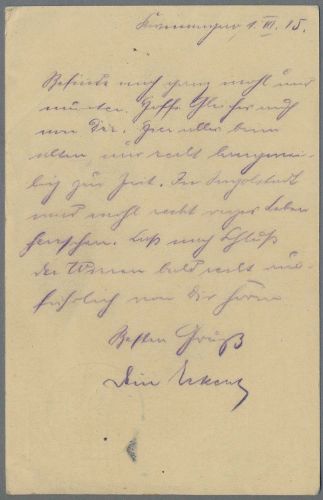 1. VI. 15.
Befinde mich ganz wohl und
munter. Hoffe Gleiches auch
von Dir. Hier alles beim
alten, nur recht langwei-
lig zur Zeit. In Ingolstadt
wird wohl recht reges Leben
herrschen. Laß nach Schluß
der Wirren bald recht aus-
führlich von Dir hören
Besten Gruß
Dein